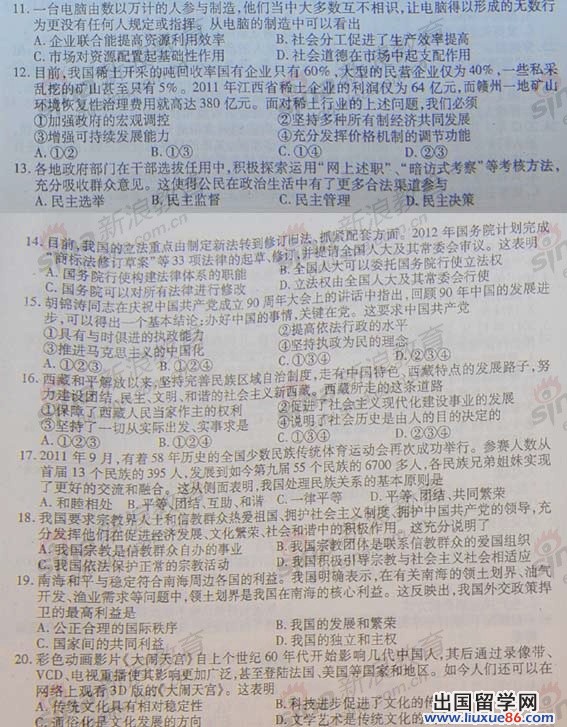 11. 一台电脑由数以万计的人参与制造,他们当中大多数互不相识,让电脑得以形成的无数行
为更没有任何人规定或指挥。从电脑的制造中可以看出
A. 企业联合能提高资源利用效率 B. 社会分工促进了生产效率提高
C. 市场对资源配置起基础性作用 D. 社会道德在市场中起支配作用
12. 目前,我国稀土开采的吨回收率国有企业只有 60%、大型的民营企业仅为 40%,一些私采
乱挖的矿山甚至只有 5%。2011 年江西省稀土企业的利润仅为 64 亿元,而赣州一地矿山
环境恢复性治理费用就高达 380 亿元。面对稀土行业的上述问题,我们必须
①加强政府的宏观调控 ②坚持多种所有制经济共同发展
③增强可持续发展能力 ④充分发挥价格机制的调节功能
A. ①② B. ①③ C. ①④ D. ②④
13. 各地政府部门在干部选拔任用中,积极探索运用“网上述职”、“暗访式考察”等考核方法,
充分吸收群众意见。这使得公民在政治生活中有了更多合法渠道参与
A. 民主选举 B. 民主监督 C. 民主管理 D. 民主决策
14. 目前,我国的立法重点由制定新法转到修订旧法、抓紧配套方面。2012 年国务院计划完成
“商标法修订草案”等 33 项法律的起草、修订,并提请全国人大及其常委会审议。这表明
A. 国务院行使构建法律体系的职能 B. 全国人大可以委托国务院行使立法权
C. 国务院可以对所有法律进行修改 D. 立法权由全国人大及其常委会行使
15. 胡锦涛同志在庆祝中国共产党成立 90 周年大会上的讲话中指出,回顾 90 年中国的发展进
步,可以得出一个基本结论:办好中国的事情,关键在党。这要求中国共产党
①具有与时俱进的执政能力 ②提高依法行政的水平
③推进马克思主义的中国化 ④坚持执政为民的理念
A. ①②③ B. ①②④ C. ①③④ D. ②③④
16. 西藏和平解放以来,坚持完善民族区域自治制度,走有中国特色、西藏特点的发展路子,努
力建设团结、民主、文明、和谐的社会主义新西藏。西藏所走的这条道路
①保障了西藏人民当家作主的权利 ②促进了社会主义现代化建设事业的发展
③坚持了一切从实际出发、实事求是 ④符合社会历史是由人的目的决定的
A. ①②③ B. ①②④ C. ①③④ D. ②③④
17. 2011 年 9 月,有着 58 年历史的全国少数民族传统体育运动会再次成功举行。参赛人数从
首届 13 个民族的 395 人,发展到如今第九届 55 个民族的 6700 多人,各民族兄弟姐妹实现
了更好的交流和融合。这从侧面表明,我国处理民族关系的基本原则是
A. 和睦相处 B. 平等、团结、互助、和谐 C. 一律平等 D. 平等、团结、共同繁荣
18. 我国要求宗教界人士和信教群众热爱祖国、拥护社会主义制度、拥护中国共产党的领导,充
分发挥他们在促进经济发展、文化繁荣、社会和谐中的积极作用。这充分说明了
A. 我国宗教是信教群众自办的事业 B. 我国宗教团体是联系信教群众的爱国组织
C. 我国依法保护正常的宗教活动 D. 我国积极引导宗教与社会主义社会相适应
19. 南海和平与稳定符合南海周边各国的利益。我国明确表示,在有关南海的领土划界、油气
开发、渔业需求等问题中,领土划界是我国在南海的核心利益。这反映出,我国外交政策捍
卫的最高利益是
A. 公正合理的国际秩序 B. 我国的发展和繁荣
C. 国家间的共同利益 D. 我国的独立和主权
20. 彩色动画影片《大闹天宫》自上个世纪 60 年代开始影响几代中国人,其后通过录像带、
VCD、电视重播使其影响更加广泛,甚至登陆法国、美国等国家和地区。如今人们还可以在
网络上观看 3D 版的《大闹天宫》。这表明
A. 传统文化具有相对稳定性 B. 科技进步促进了文化的传
C. 通俗化是文化发展的方向 D. 文学艺术是传统文化的
新浪教育
sina
.com.cn
出国留学网
www.liuxue86.com